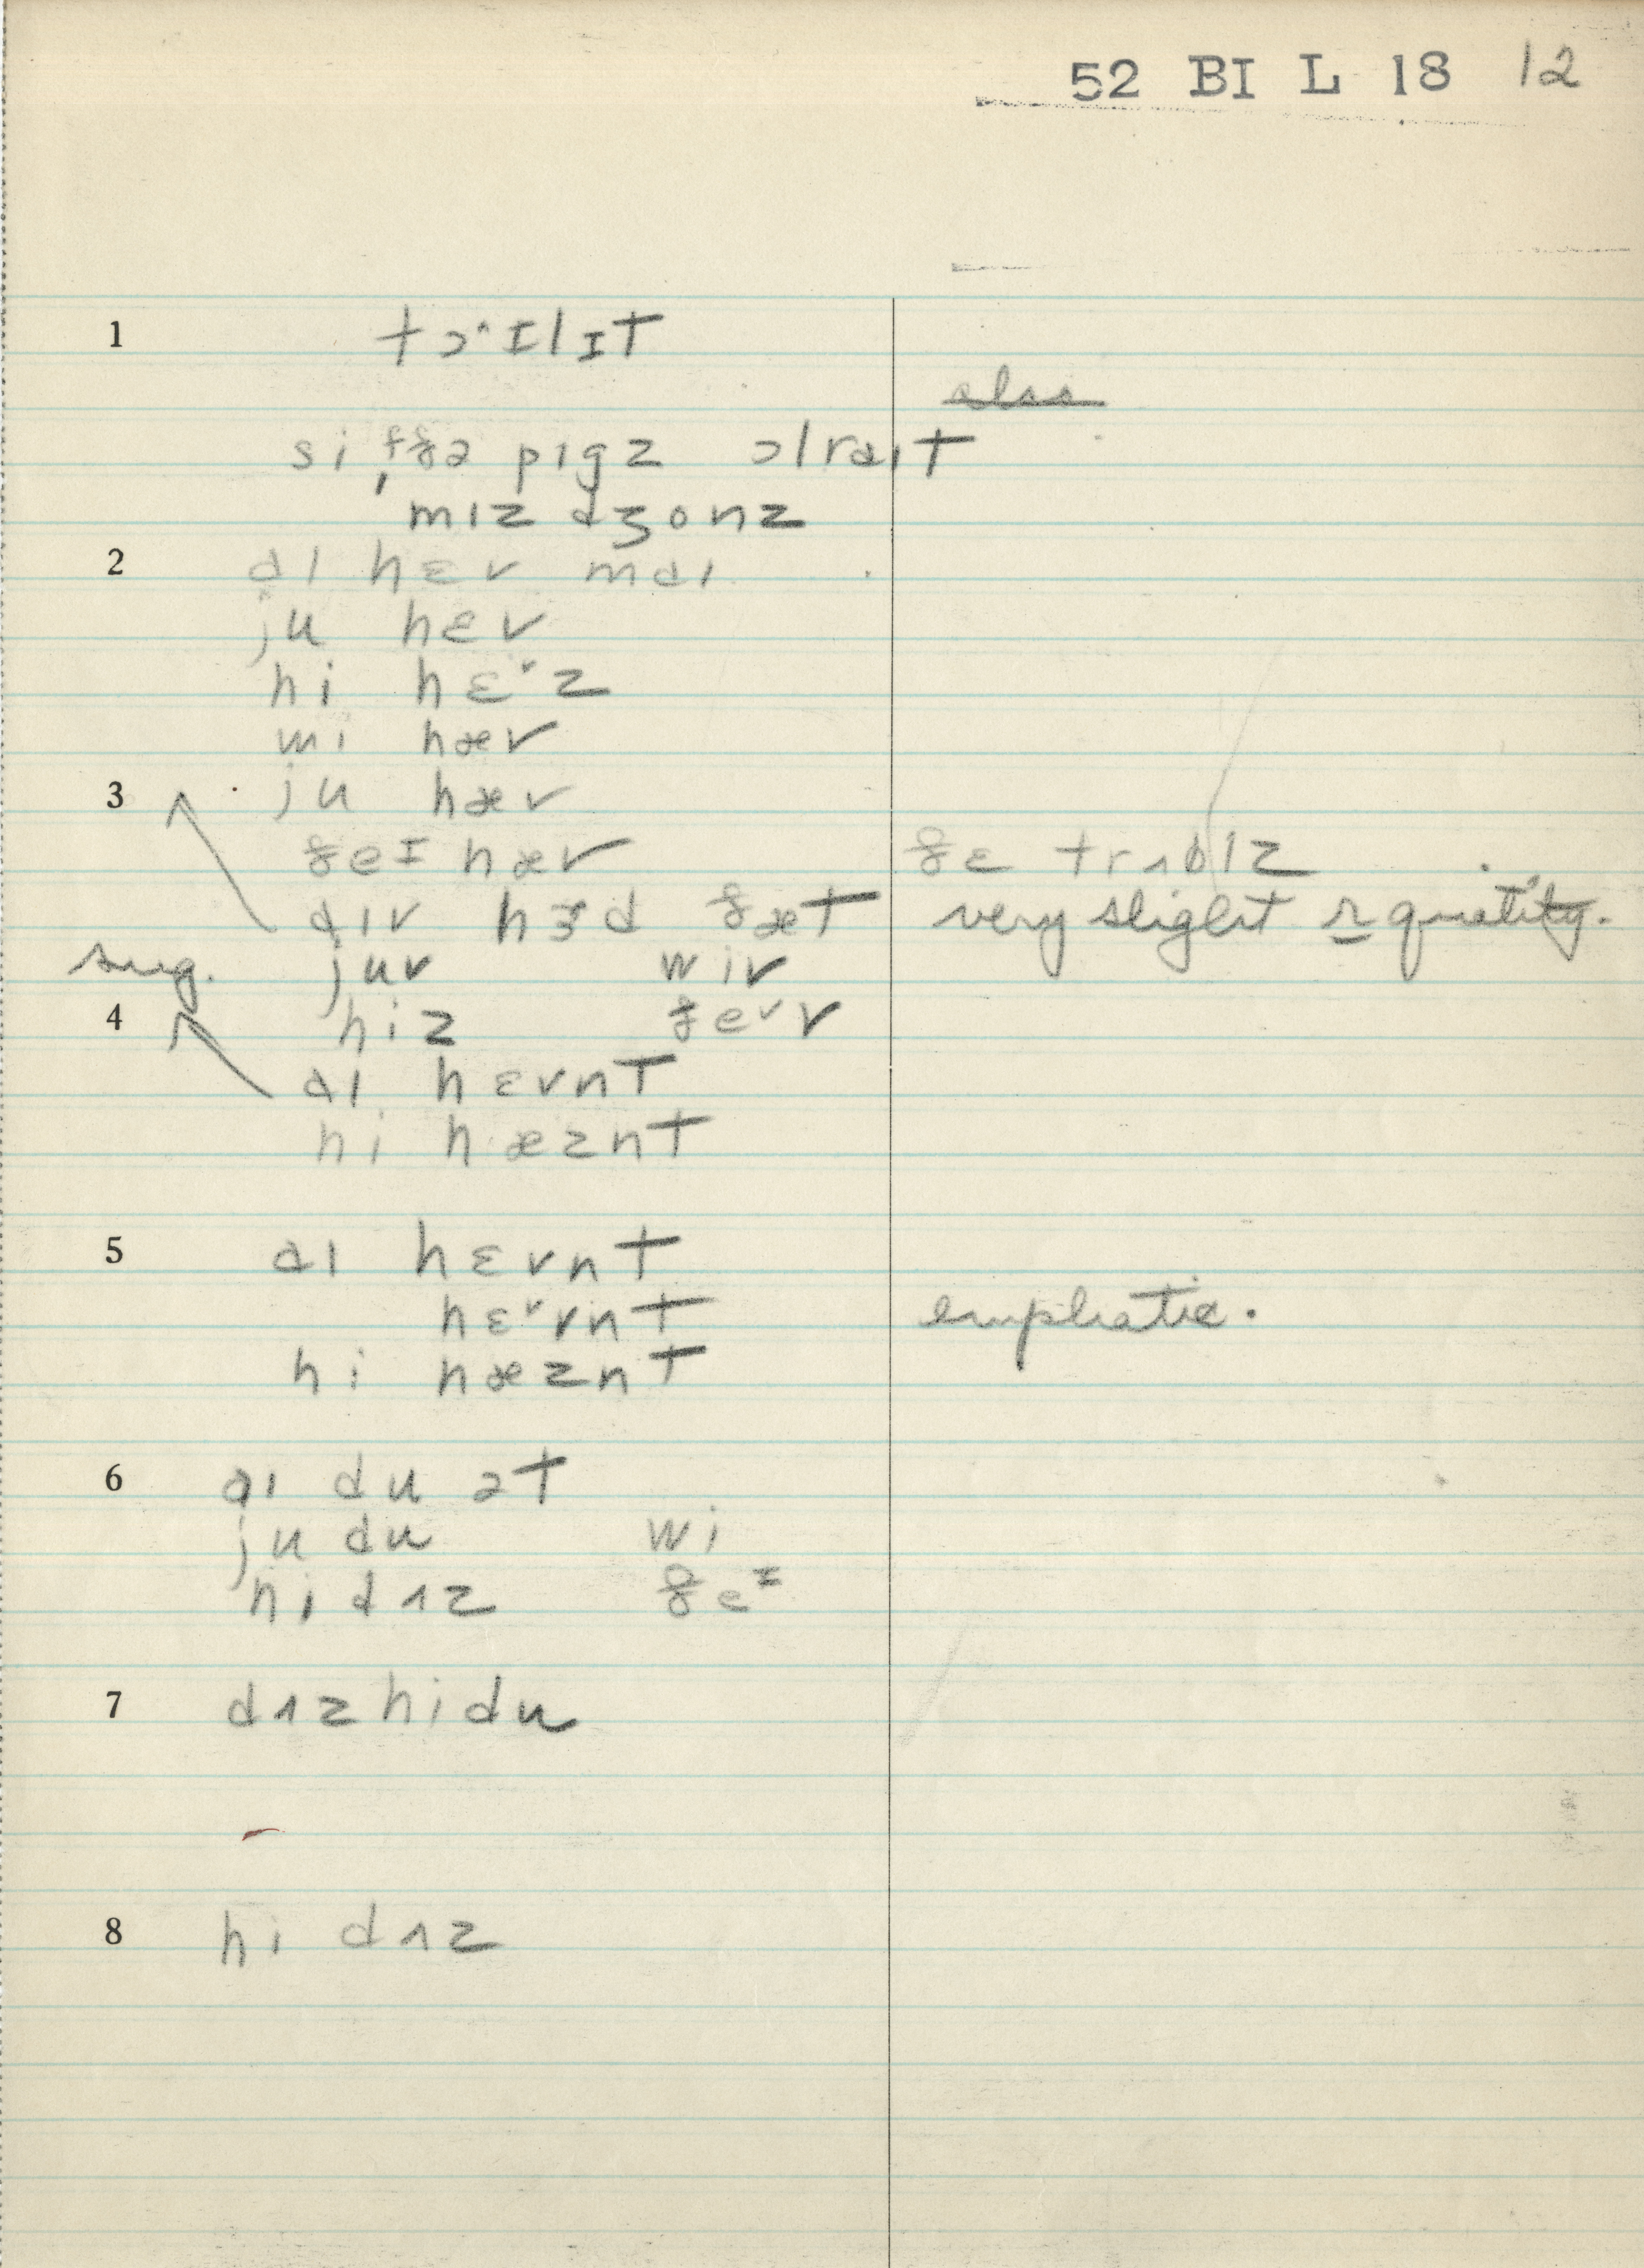 52 BI L 18 12
1 tɔˑɪlɪt
also
si, ɪf ðə pɪgz ɔlraɪt
mɪz dʒonz
2 aɪ hɛv maɪ
ju hɛv
hi hɛˑz
wi hæv
3 ju hæv
ðeɪ hæv ðɛ trʌblz
aɪv hɝd ðæt very slight r quality.
sug. juv wiv
4 hiz ðeˇv
aɪ hɛvnt
hi hæznt
5 aɪ hɛvnt
hɛˇvnt emphatic.
hi hæznt
6 aɪ du ət
ju du wi
hi dʌz ðeɪ
7 dʌz hi du
8 hi dʌz